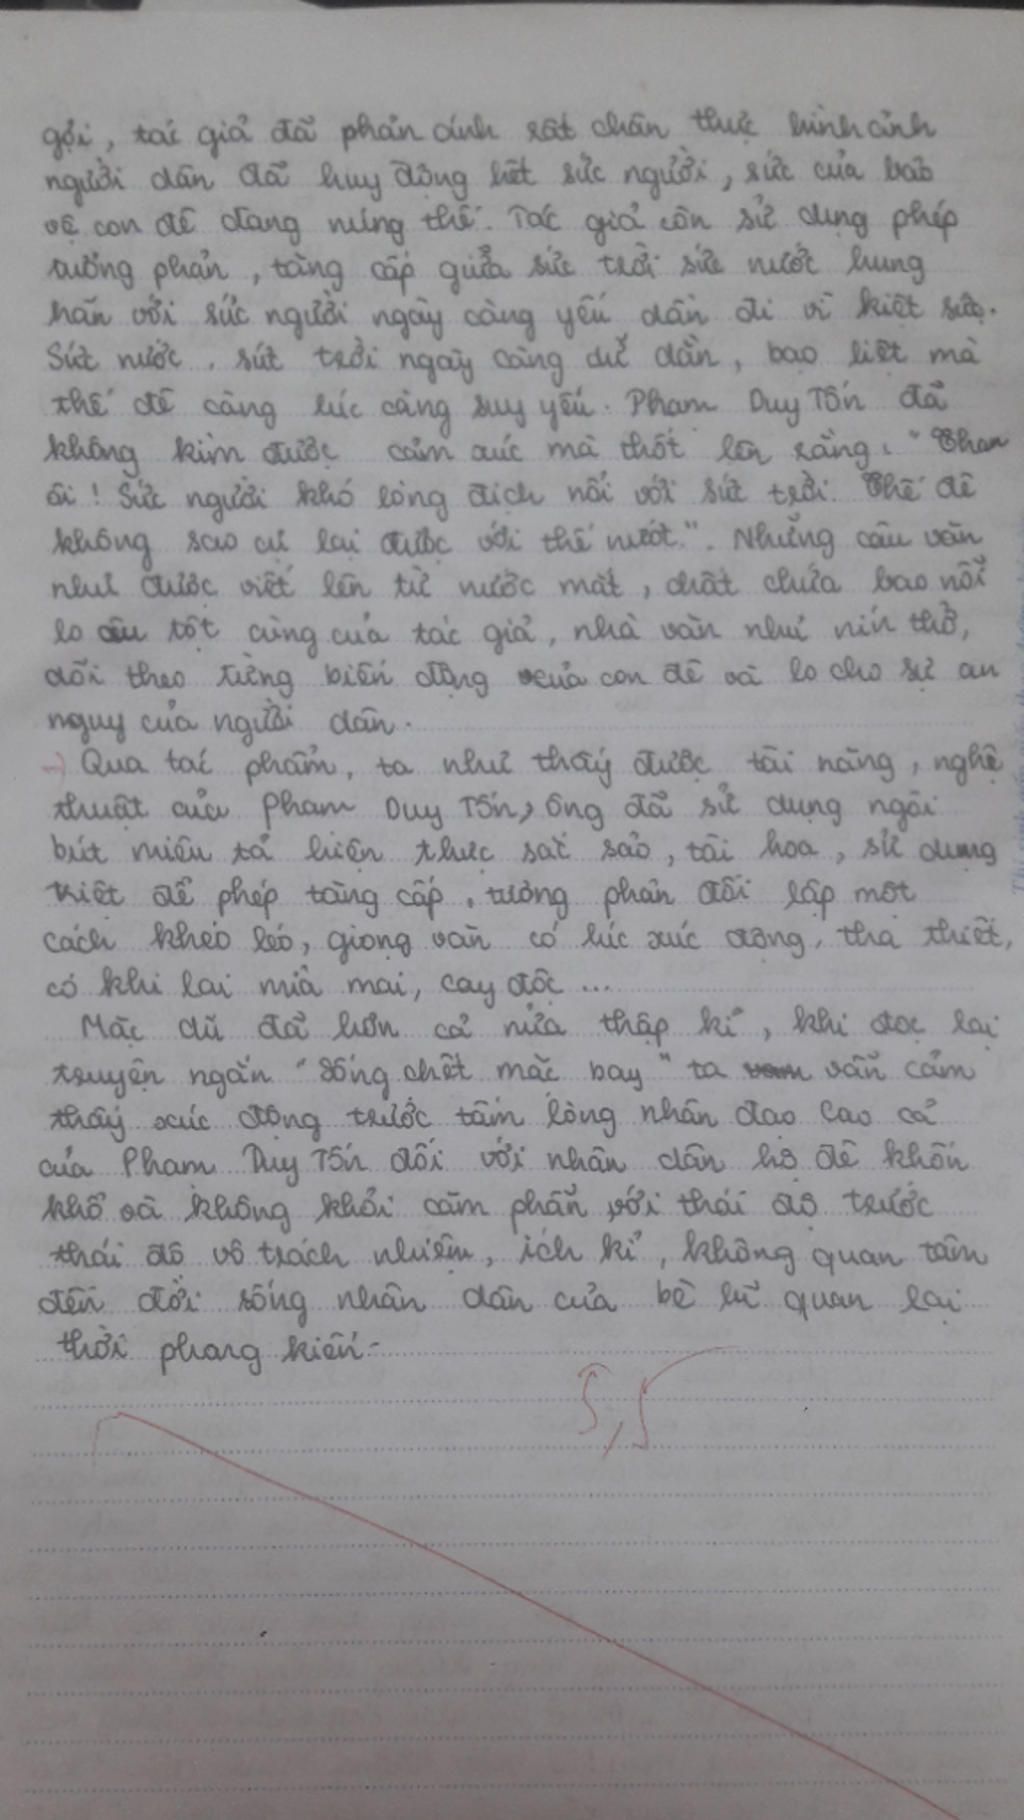 gợi, tác giả đã phản ánh rất chân thực hình ảnh
người dân đã huy động hết sức người, sức của bảo
vệ con đê đang núng thế. Tác giả còn sử dụng phép
tương phản, tăng cấp giữa sức trời sức nước hung
hãn với sức người ngày càng yếu dần đi vì kiệt sức.
Sức nước, sức trời ngày càng dữ dằn, bạo liệt mà
thế đê càng lúc càng suy yếu. Phạm Duy Tốn đã
không kìm được cảm xúc mà thốt lên rằng: "Than
ôi! Sức người khó lòng địch nổi với sức trời. Thế đê
không sao cự lại được với thế nước.". Những câu văn
như được viết lên từ nước mắt, chất chứa bao nỗi
lo âu tột cùng của tác giả, nhà văn như nín thở,
dõi theo từng biến động của con đê và lo cho sự an
nguy của người dân.
→ Qua tác phẩm, ta như thấy được tài năng, nghệ
thuật của Phạm Duy Tốn, ông đã sử dụng ngòi
bút miêu tả hiện thực sắc sảo, tài hoa, sử dụng
triệt để phép tăng cấp, tương phản đối lập một
cách khéo léo, giọng văn có lúc xúc động, tha thiết,
có khi lại mỉa mai, cay độc ...
Mặc dù đã hơn cả nửa thập kỉ, khi đọc lại
truyện ngắn "Sống chết mặc bay" ta vẫn cảm
thấy xúc động trước tấm lòng nhân đạo cao cả
của Phạm Duy Tốn đối với nhân dân hộ đê khốn
khổ và không khỏi căm phẫn với thái độ trước
thái độ vô trách nhiệm, ích kỉ, không quan tâm
đến đời sống nhân dân của bè lũ quan lại
thời phong kiến.
5,5